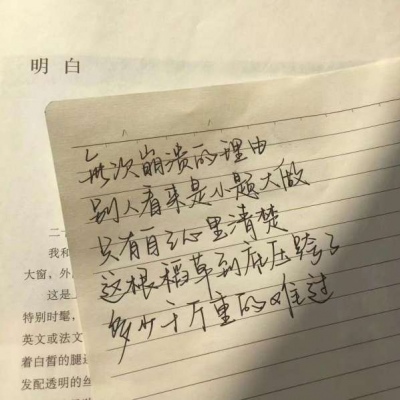 明白
每次崩溃的理由
别人看来是小题大做
只有自己心里清楚
这根稻草到底压垮了
多少千斤重的难过
二十
我和
大窗，外
这是
特别时髦，
英文或法文
着白皙的腿
发配透明的丝